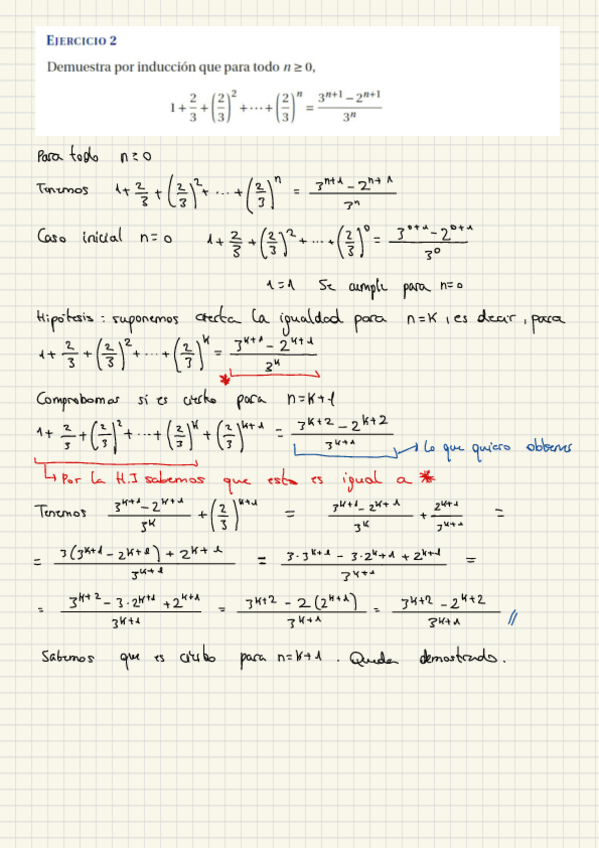 EJERCICIO 2
Demuestra por inducción que para todo n ≥ 0,
1 + 2/3 + (2/3)^2 + ··· + (2/3)^n = (3^{n+1} − 2^{n+1})/3^n
Para todo n ≥ 0
Tenemos 1 + 2/3 + (2/3)^2 + ... + (2/3)^n = (3^{n+1} − 2^{n+1})/3^n
Caso inicial n=0 1 + 2/3 + (2/3)^2 + ... + (2/3)^0 = (3^{0+1} − 2^{0+1})/3^0
1=1 Se cumple para n=0
Hipótesis: suponemos cierta la igualdad para n=K, es decir, para
1 + 2/3 + (2/3)^2 + ... + (2/3)^K = (3^{K+1} − 2^{K+1})/3^K
*
Comprobamos si es cierto para n=K+1
1 + 2/3 + (2/3)^2 + ... + (2/3)^K + (2/3)^{K+1} = (3^{K+2} − 2^{K+2})/3^{K+1} → Lo que quiero obtener
↳ Por la H.I sabemos que esto es igual a *
Tenemos (3^{K+1} − 2^{K+1})/3^K + (2/3)^{K+1} = (3^{K+1} − 2^{K+1})/3^K + 2^{K+1}/3^{K+1} =
= (3(3^{K+1} − 2^{K+1}) + 2^{K+1})/3^{K+1} = (3·3^{K+1} − 3·2^{K+1} + 2^{K+1})/3^{K+1} =
= (3^{K+2} − 3·2^{K+1} + 2^{K+1})/3^{K+1} = (3^{K+2} − 2(2^{K+1}))/3^{K+1} = (3^{K+2} − 2^{K+2})/3^{K+1} //
Sabemos que es cierto para n=K+1. Queda demostrado.